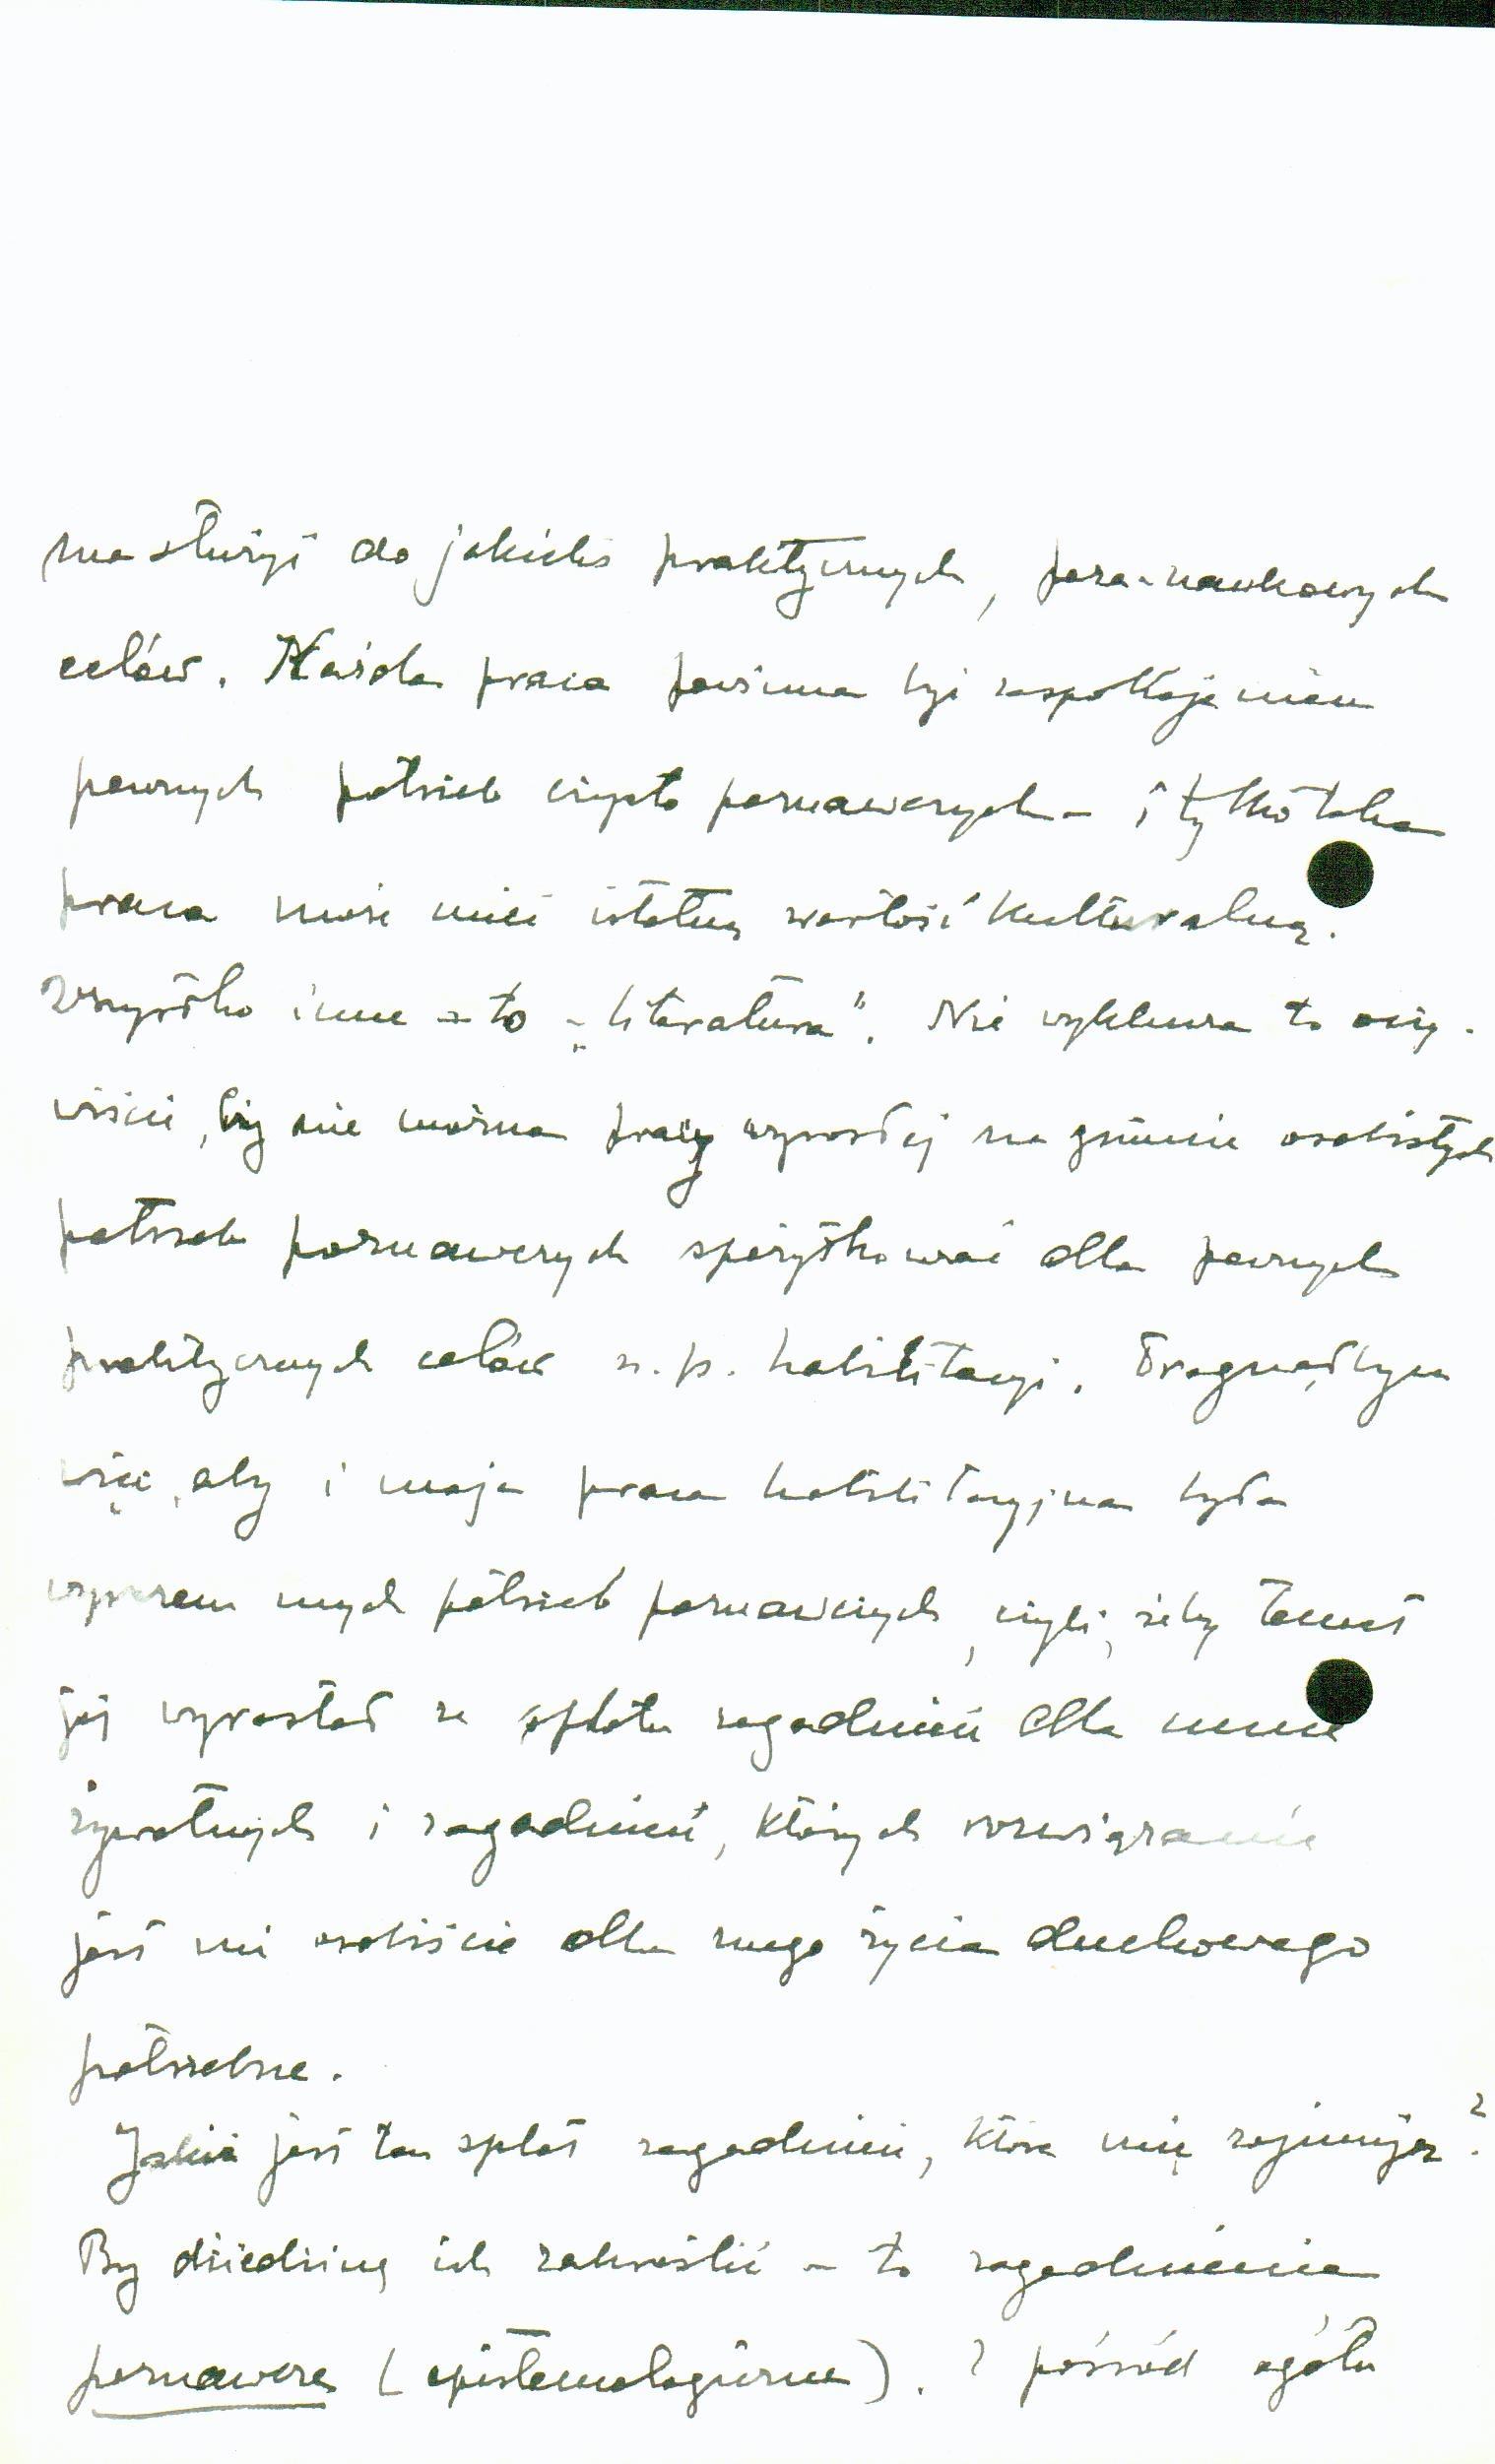 ma służyć do jakichś praktycznych, poza-naukowych
celów. Każda praca powinna być zaspokojeniem
pewnych potrzeb czysto poznawczych – i tylko taka
praca może mieć istotną wartość kulturalną.
Wszystko inne – to – „literatura”. Nie wyklucza to oczy-
wiście, by nie można pracy wyrosłej na gruncie osobistych
potrzeb poznawczych spożytkować dla pewnych
praktycznych celów n.p. habilitacji. Pragnąłbym
więc, aby i moja praca habilitacyjna była
wyrazem mych potrzeb poznawczych, czyli, żeby temat
jej wyrastał ze splotu zagadnień dla mnie
żywotnych i zagadnień, których rozwiązanie
jest mi osobiście dla mego życia duchowego
potrzebne.
Jaki jest ten splot zagadnień, które mię zajmują?
By dziedzinę ich zakreślić – to zagadnienia
poznawcze (epistemologiczne). Z pośród ogółu